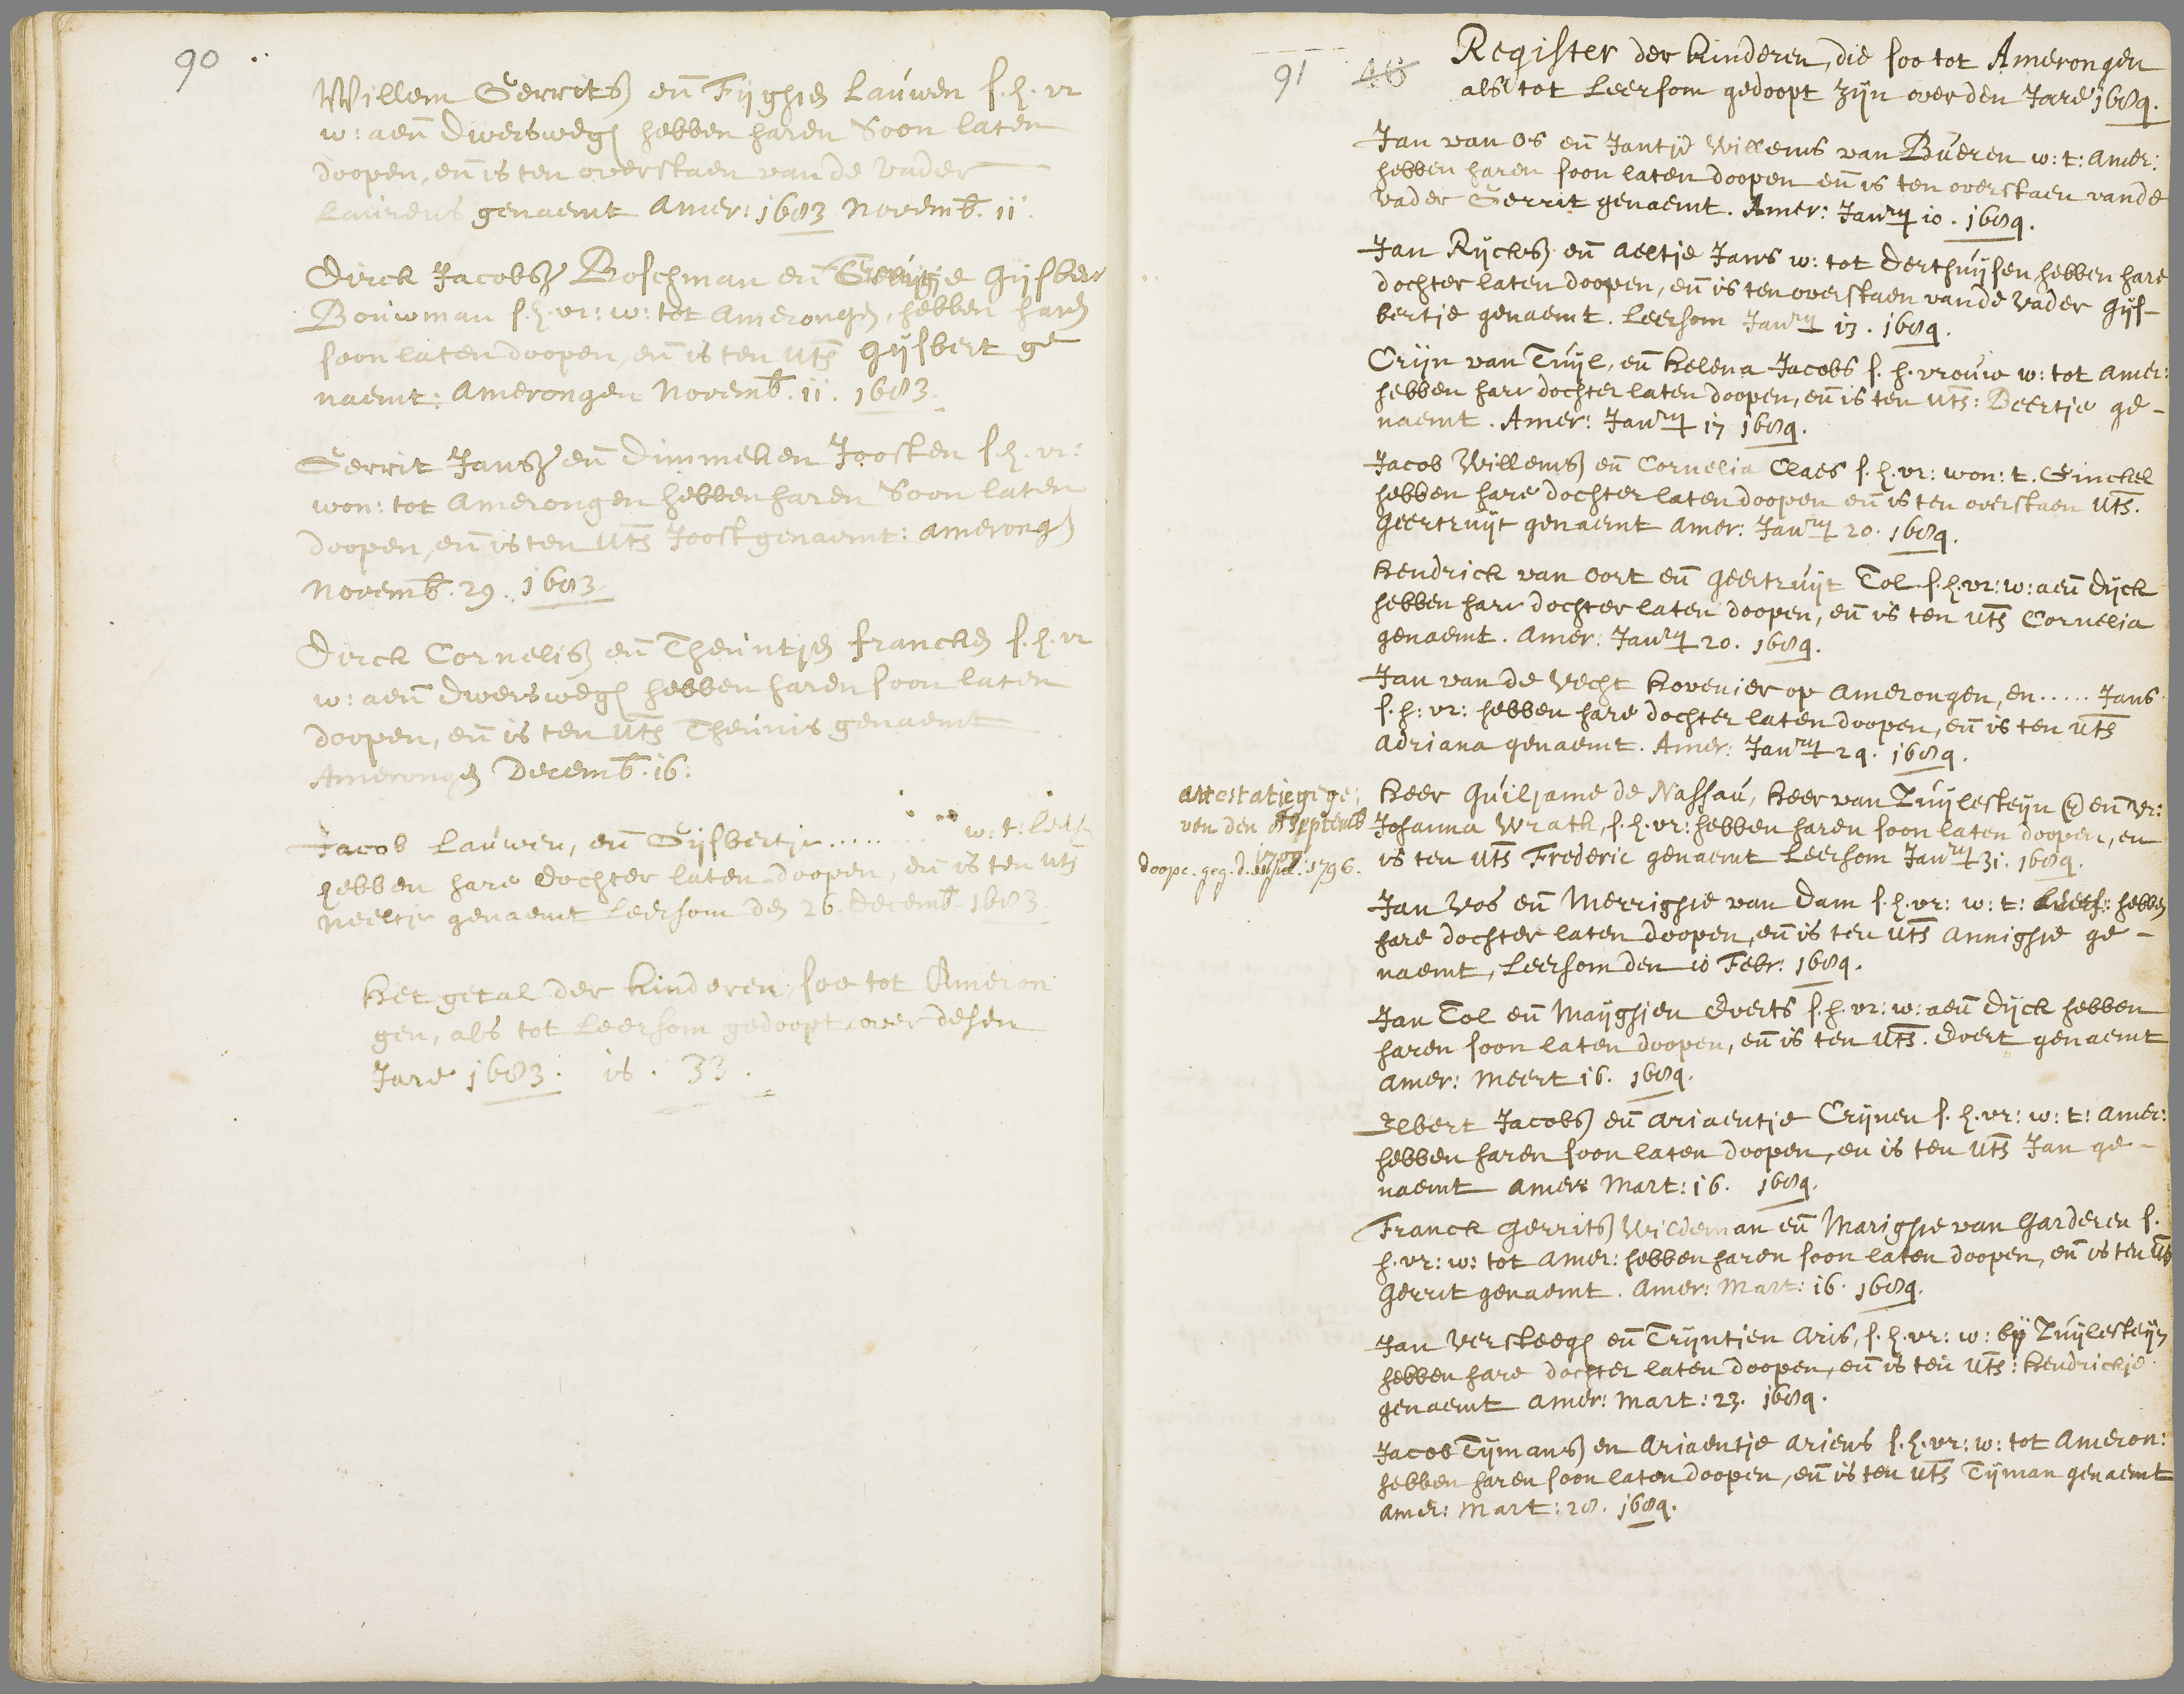 90
Willem Gerrits en Fijghie Lauwen s. h. vr
w: aen dwerswegh hebben haren Soon laten
doopen, en is ten overstaen van de vader
Laurens genaemt Amer: 1683 Novemb. 11.
Dirck Jacobsz Boschman en Geurtje Gijsbers
Bouwman s. h. vr: w: tot Amerongen, hebben haren
soon laten doopen, en is ten uts Gijsbert ge
naemt: Amerongen Novemb. 11. 1683.
Gerrit Jansz en Dimmeken Joosten s. h. vr:
won: tot Amerongen hebben haren Soon laten
doopen, en is ten uts Joost genaemt: Amerong
Novemb. 29. 1683
Dirck Cornelisz en Theuntjen Francken s. h. vr
w: aen dwerswegh hebben haren soon laten
doopen, en is ten uts Theunis genaemt
Amerongen Decemb. 16.
Jacob Lauwen, en Gijsbertje ........ w: t: Leers
hebben hare dochter laten doopen, en is ten uts
Neeltje genaemt Leersom den 26. Decemb. 1683.
Het getal der kinderen soo tot Ameron
gen, als tot Leersom gedoopt, over desen
Jare 1683. is. 33.
91 46
Register der kinderen, die soo tot Amerongen
als tot Leersom gedoopt zijn over den Jare 1684.
Jan van Os en Jantje Willems van Bueren w: t: Amer:
hebben haren soon laten doopen en is ten overstaen vande
vader Gerrit genaemt. Amer: Janry 10. 1684.
Jan Rycksz en Aeltje Jans w: tot Derthuijsen, hebben hare
dochter laten doopen, en is ten overstaen van de vader Gijs-
bertje genaemt. Leersom Janry 13. 1684.
Crijn van Tuijl, en Helena Jacobs s. h. vrouw w: tot Amer:
hebben hare dochter laten doopen, en is ten uts: Beertje ge-
naemt. Amer: Janry 17 1684.
Jacob Willemsz en Cornelia Claes s. h. vr: won: t. Ginckel
hebben hare dochter laten doopen en is ten overstaen uts.
Geertruijt genaemt Amer: Janry 20. 1684.
Hendrick van Oort en Geertruijt Tol s. h. vr: w: aen Dijck
hebben hare dochter laten doopen, en is ten uts Cornelia
genaemt. Amer: Janry 20. 1684.
Jan van de Vecht Hovenier op Amerongen, en ..... Jans
s. h: vr: hebben hare dochter laten doopen, en is ten uts
Adriana genaemt. Amer: Janry 24. 1684.
attestatie gege:
ven den Septemb
doopc. geg. d. 1796.
Heer Guiljame de Nassau, Heer van Zuijlesteijn en vr:
Johanna Wrath, s. h. vr: hebben haren soon laten doopen, en
is ten uts Frederic genaemt Leersom Janry 31. 1684.
Jan Vos en Merrighie van Dam s. h. vr: w: t: Leers: hebben
hare dochter laten doopen, en is ten uts Annighie ge-
naemt, Leersom den 10 Febr: 1684.
Jan Tol en Maijghien Everts s. h. vr: w: aen Dijck hebben
haren soon laten doopen, en is ten uts. Evert genaemt
Amer: Meert 16. 1684.
Elbert Jacobsz en Ariaentje Crijnen s. h. vr: w: t: Amer:
hebben haren soon laten doopen, en is ten uts Jan ge-
naemt Amer: Mart: 16. 1684.
Franck Gerritsz Wildeman en Marighie van Garderen s.
h. vr: w: tot Amer: hebben haren soon laten doopen, en is ten uts
Gerrit genaemt. Amer: Mart: 16. 1684.
Jan Versteegh en Trijntjen Aris, s. h. vr: w: bij Zuijlesteijn
hebben hare dochter laten doopen, en is ten uts: Hendrickje
genaemt Amer: Mart: 23. 1684.
Jacob Tijmansz en Ariaentje Ariens s. h. vr: w: tot Ameron:
hebben haren soon laten doopen, en is ten uts Tijman genaemt
Amer: Mart: 28. 1684.